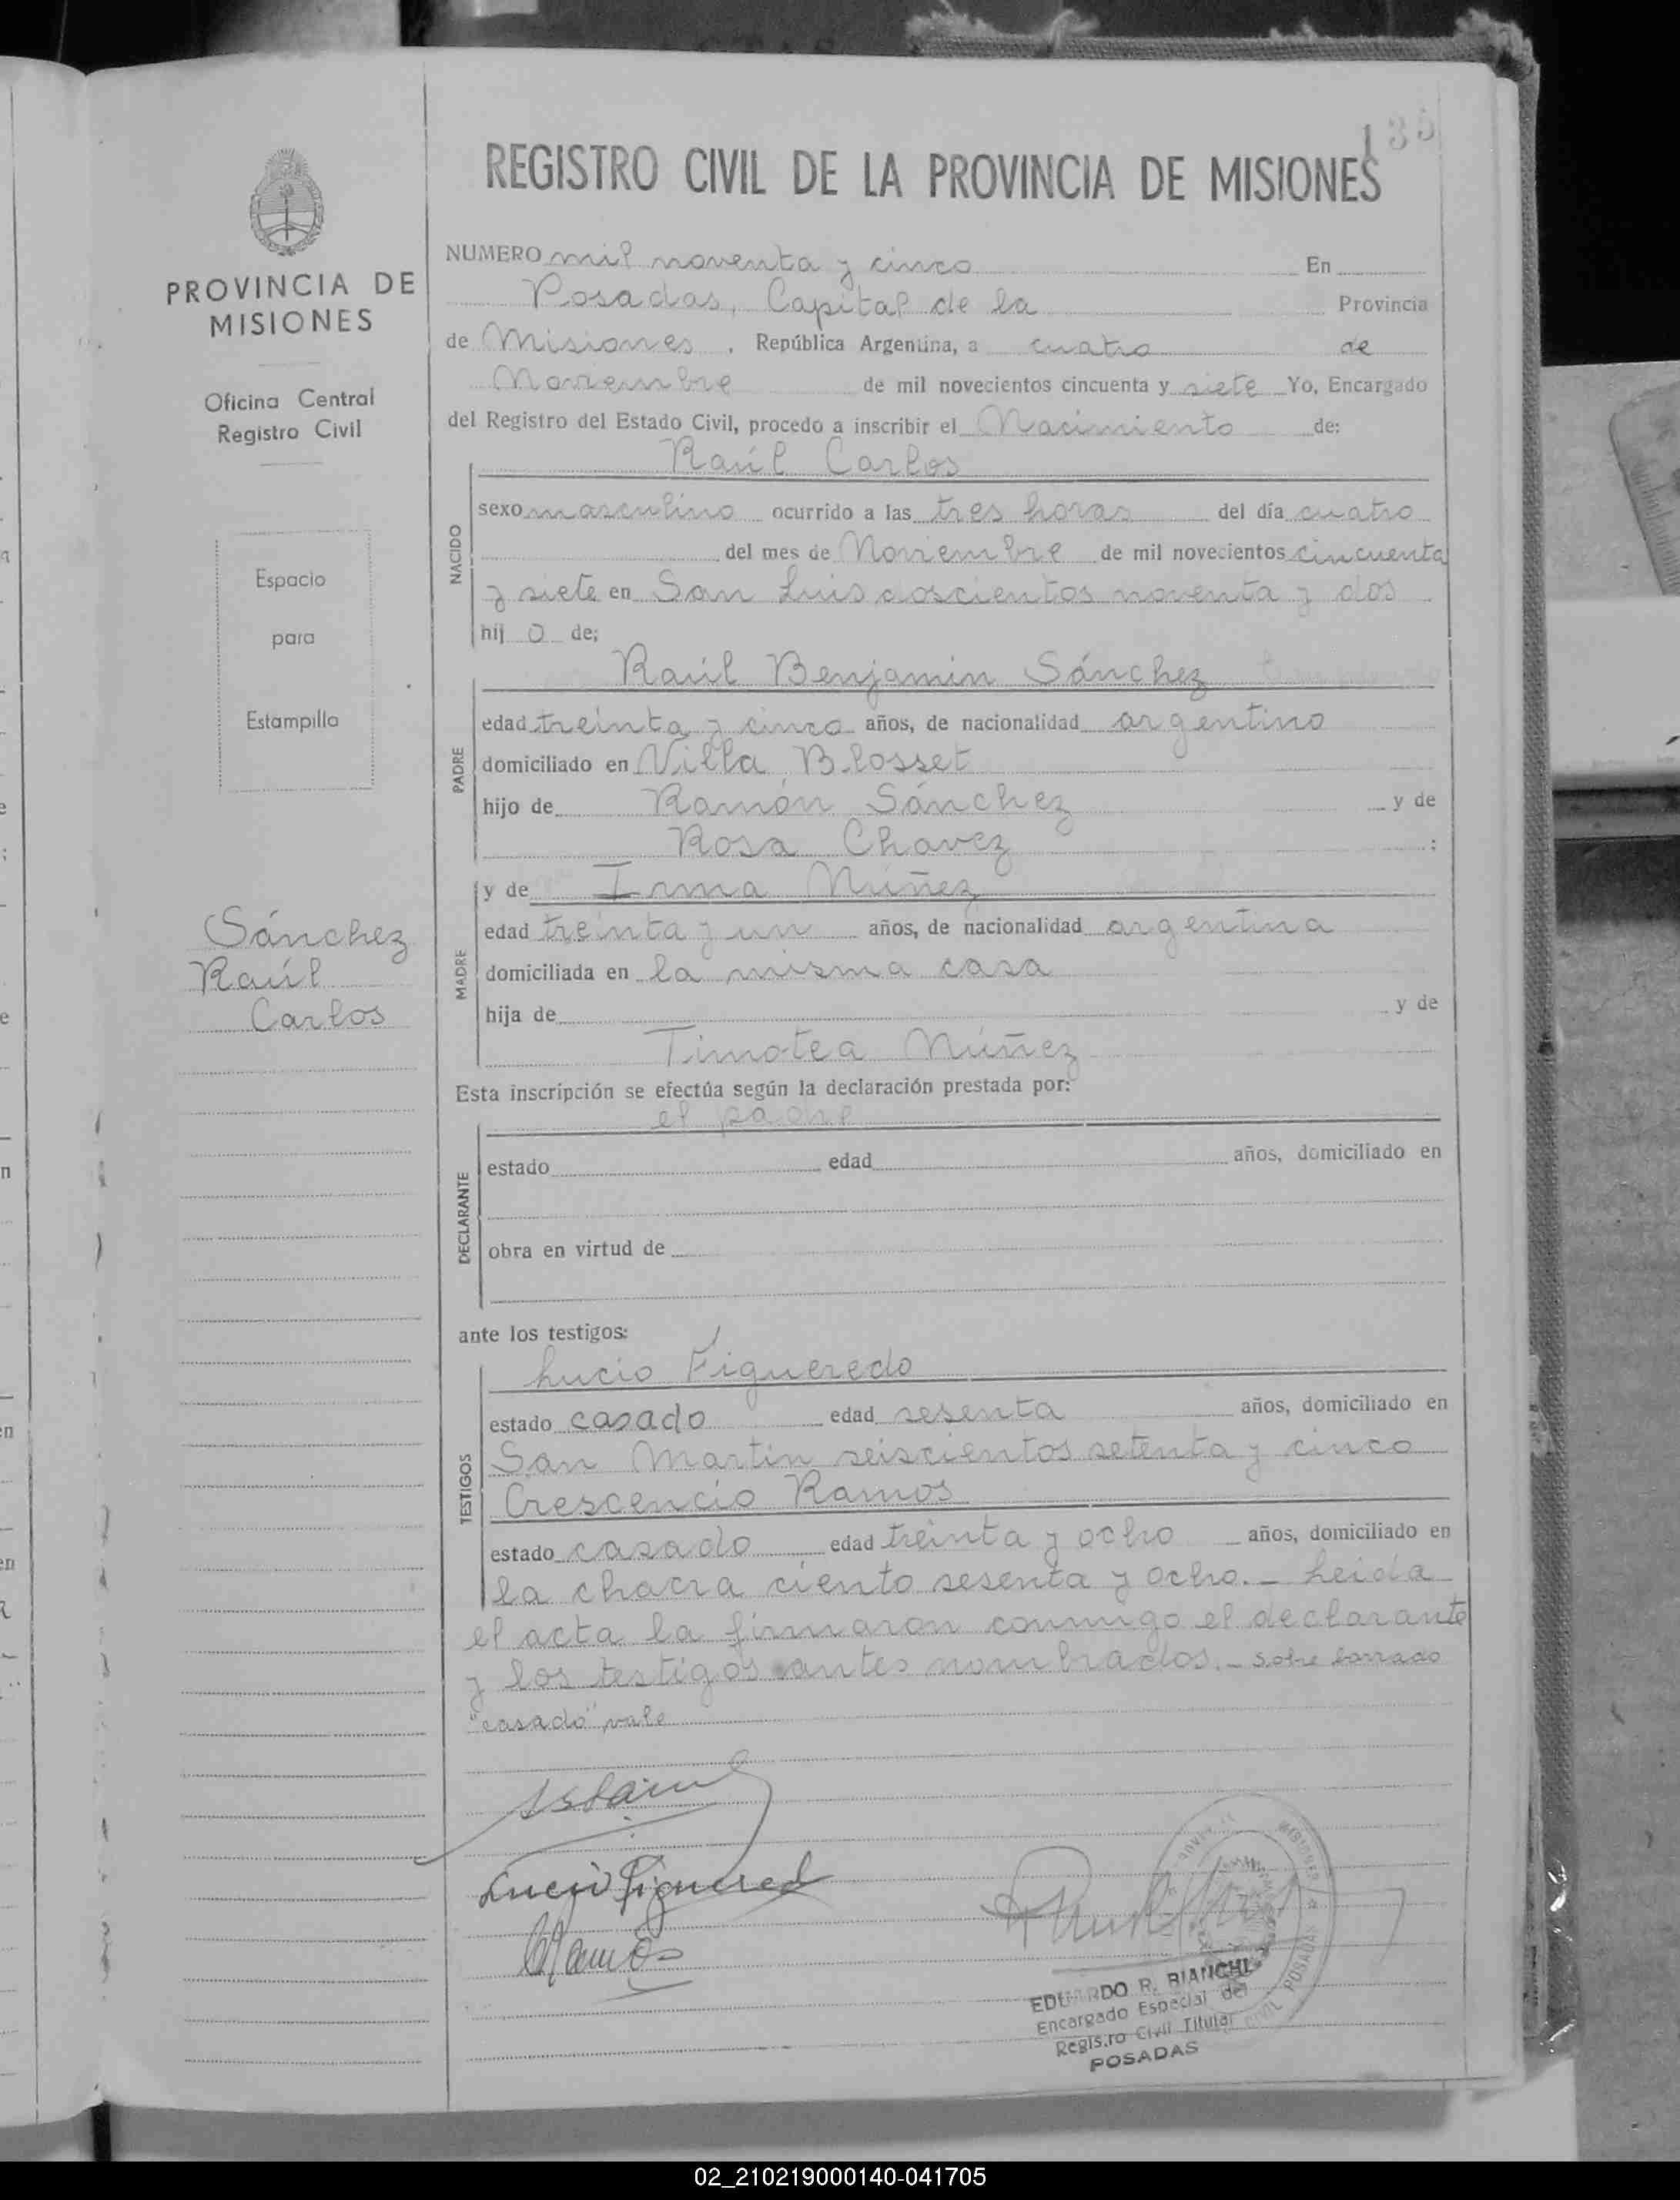 135
REGISTRO CIVIL DE LA PROVINCIA DE MISIONES
PROVINCIA DE
MISIONES
Oficina Central
Registro Civil
Espacio
para
Estampilla
Sánchez
Raúl
Carlos
NUMERO mil noventa y cinco En
Posadas, Capital de la Provincia
de Misiones, República Argentina, a cuatro de
Noviembre de mil novecientos cincuenta y siete Yo, Encargado
del Registro del Estado Civil, procedo a inscribir el Nacimiento de:
NACIDO
Raúl Carlos
sexo masculino ocurrido a las tres horas del día cuatro
del mes de Noviembre de mil novecientos cincuenta
y siete en San Luis doscientos noventa y dos
hij o de;
PADRE
Raúl Benjamin Sánchez
edad treinta y cinco años, de nacionalidad argentino
domiciliado en Villa Blosset
hijo de Ramón Sánchez y de
Rosa Chavez :
MADRE
y de Irma Núñez
edad treinta y un años, de nacionalidad argentina
domiciliada en la misma casa
hija de y de
Timotea Núñez
Esta inscripción se efectúa según la declaración prestada por:
DECLARANTE
el padre
estado edad años, domiciliado en
obra en virtud de
ante los testigos:
TESTIGOS
Lucio Figueredo
estado casado edad sesenta años, domiciliado en
San Martin seiscientos setenta y cinco
Crescencio Ramos
estado casado edad treinta y ocho años, domiciliado en
la chacra ciento sesenta y ocho.- Leida
el acta la firmaron conmigo el declarante
y los testigos antes nombrados.- sobre borrado
"casado" vale
Lucio Figuered
Ramos
EDUARDO R. BIANCHI
Encargado Especial del
Regis.ro Civil Titular
POSADAS
02_210219000140-041705